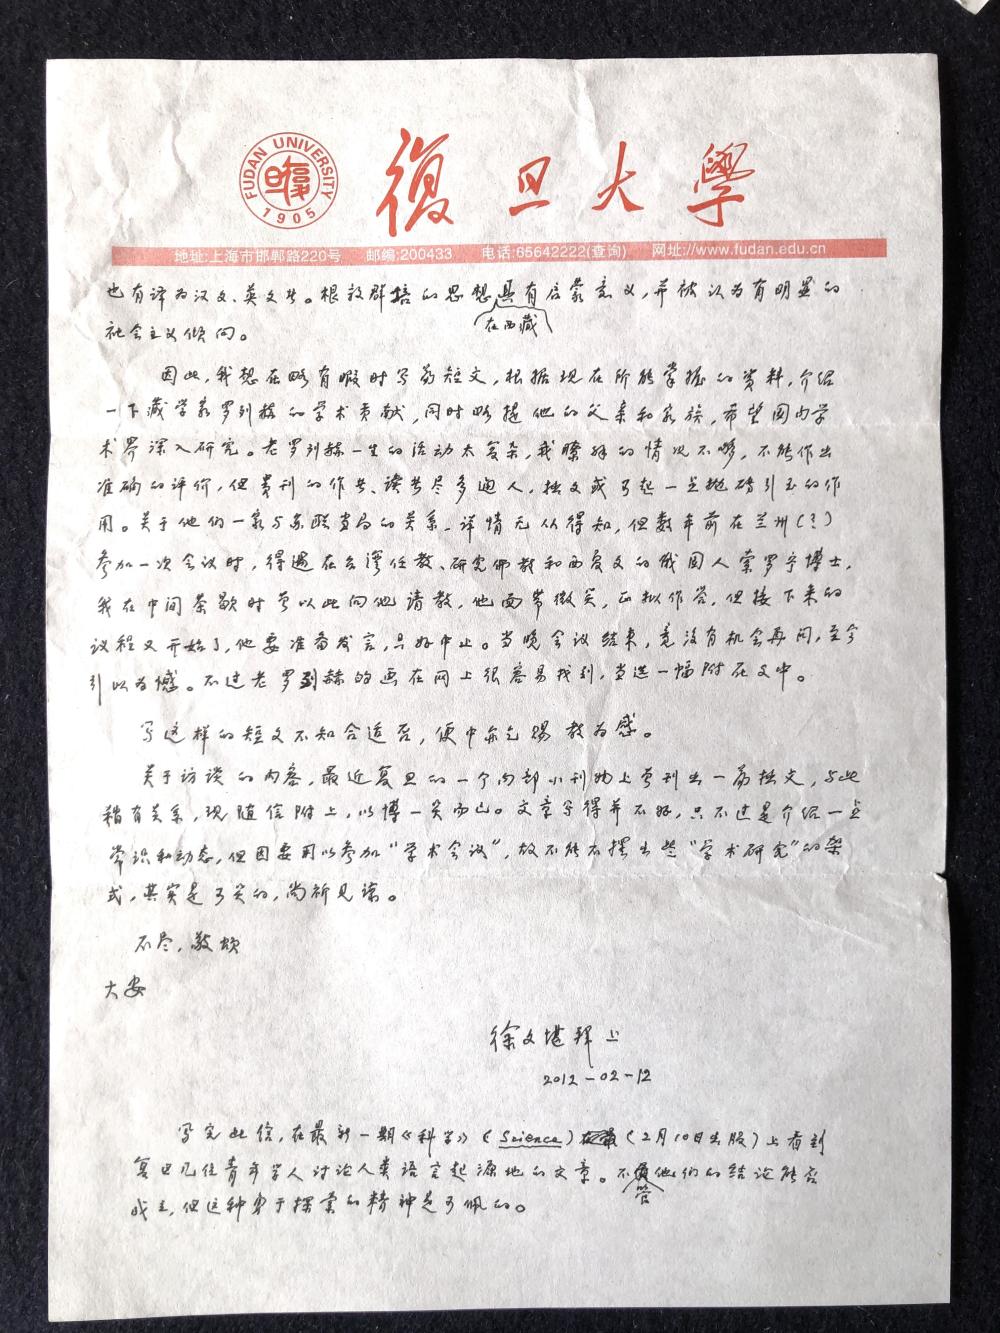 FUDAN UNIVERSITY
1905
復旦大學
地址:上海市邯郸路220号 邮编:200433 电话:65642222(查询) 网址://www.fudan.edu.cn
也有译为汉文、英文者。根敦群培的思想在西藏具有启蒙意义,并被认为有明显的
社会主义倾向。
因此,我想在略有暇时写篇短文,根据现在所能掌握的资料,介绍
一下藏学家罗列赫的学术贡献,同时略提他的父亲和家族,希望国内学
术界深入研究。老罗列赫一生的活动太复杂,我瞭解的情况不够,不能作出
准确的评价,但贵刊的作者、读者尽多通人,拙文或可起一点抛砖引玉的作
用。关于他们一家与苏联当局的关系,详情无从得知,但数年前在兰州(?)
参加一次会议时,得遇在台湾任教、研究佛教和西夏文的俄国人索罗宁博士,
我在中间茶歇时曾以此向他请教,他面带微笑,正拟作答,但接下来的
议程又开始了,他要准备发言,只好中止。当晚会议结束,竟没有机会再问,至今
引以为憾。不过老罗列赫的画在网上很容易找到,当选一幅附在文中。
写这样的短文不知合适否,便中亦乞赐教为感。
关于访谈的内容,最近复旦的一个内部小刊物上曾刊出一篇拙文,与此
稍有关系,现随信附上,以博一笑而已。文章写得并不好,只不过是介绍一点
常识和动态,但因要用以参加“学术会议”,故不能不摆出些“学术研究”的架
式,其实是可笑的,尚祈见谅。
不尽,敬颂
大安
徐文堪拜上
2012-02-12
写完此信,在最新一期《科学》(Science)(2月10日出版)上看到
复旦几位青年学人讨论人类语言起源地的文章。不管他们的结论能否
成立,但这种勇于探索的精神是可佩的。